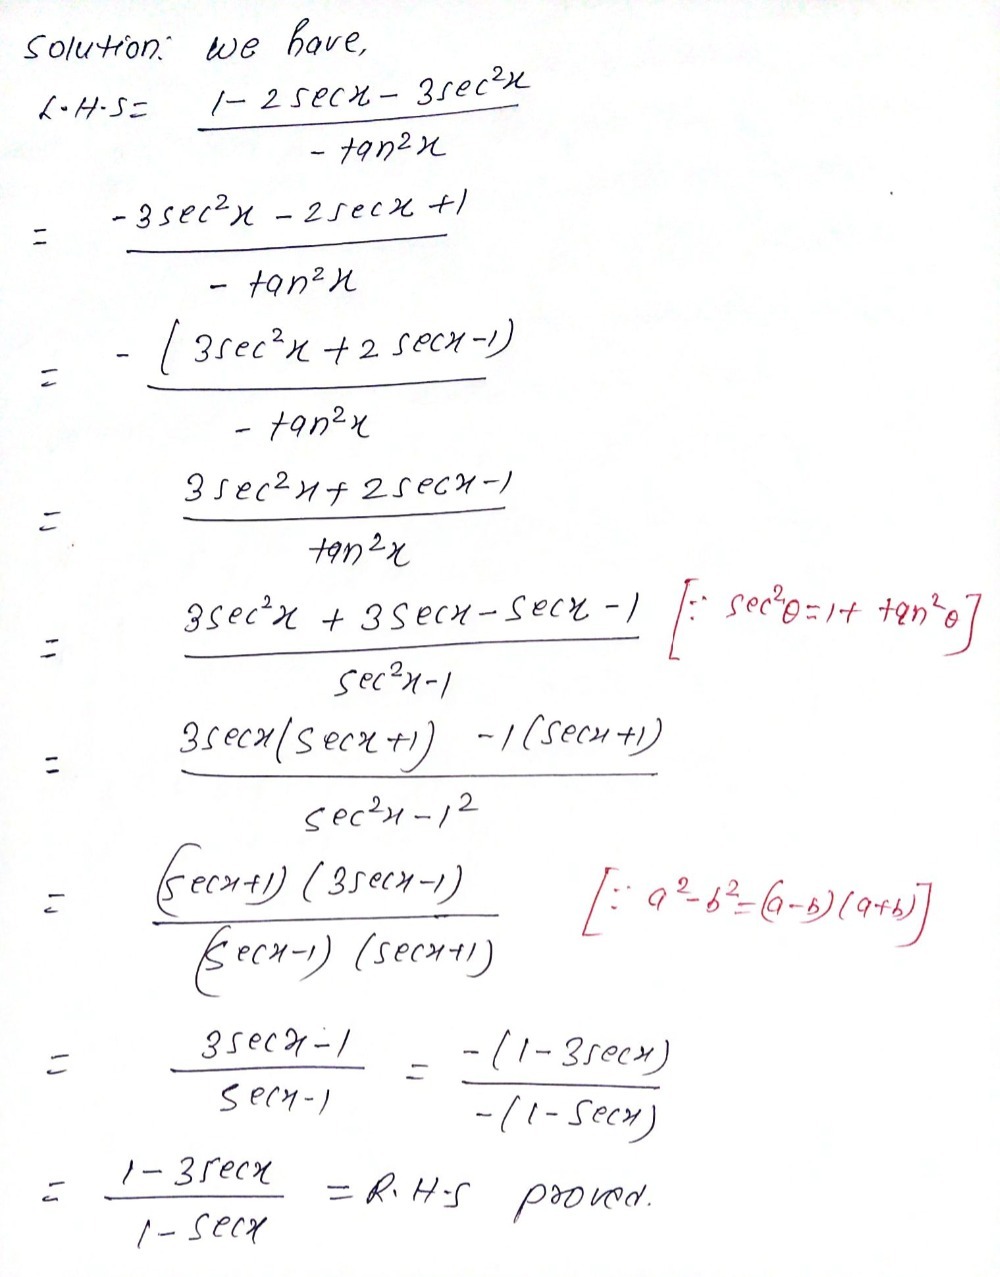 Solution: we have,
L.H.S = (1 - 2 sec x - 3 sec²x) / (- tan²x)
= (-3 sec²x - 2 sec x + 1) / (- tan²x)
= -(3 sec²x + 2 sec x - 1) / (- tan²x)
= (3 sec²x + 2 sec x - 1) / (tan²x)
= (3 sec²x + 3 sec x - sec x - 1) / (sec²x - 1) [∵ sec²θ = 1 + tan²θ]
= (3 sec x (sec x + 1) - 1 (sec x + 1)) / (sec²x - 1²)
= ((sec x + 1) (3 sec x - 1)) / ((sec x - 1) (sec x + 1)) [∵ a² - b² = (a - b) (a + b)]
= (3 sec x - 1) / (sec x - 1) = -(1 - 3 sec x) / -(1 - sec x)
= (1 - 3 sec x) / (1 - sec x) = R.H.S proved.